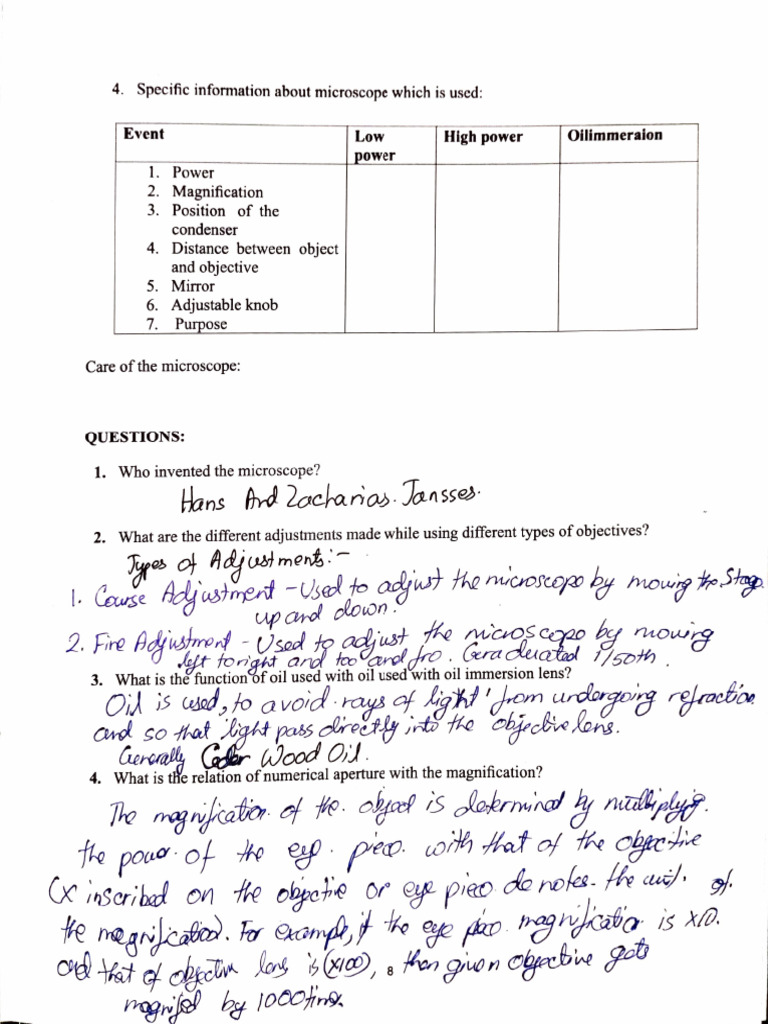 4. Specific information about microscope which is used:
Event Low power High power Oilimmeraion
1. Power
2. Magnification
3. Position of the condenser
4. Distance between object and objective
5. Mirror
6. Adjustable knob
7. Purpose
Care of the microscope:
QUESTIONS:
1. Who invented the microscope?
Hans And Zacharias. Jansses.
2. What are the different adjustments made while using different types of objectives?
Types of Adjustments:-
1. Course Adjustment - Used to adjust the microscope by moving the Stage
up and down.
2. Fine Adjustment - Used to adjust the microscope by mowing
left to right and too and fro. Geraduated 1/50th.
3. What is the function of oil used with oil used with oil immersion lens?
Oil is used, to avoid rays of light' from undergoing refraction
and so that light pass directly into the objective lens.
Generally Ceder Wood Oil.
4. What is the relation of numerical aperture with the magnification?
The magnification of the object is determined by multiplying
the power of the eye piece with that of the objective
(x inscribed on the objective or eye piece denotes the unit of
the magnification). For example, if the eye piece magnification is x10.
and that of objective lens is (x100), then given objective gets
8
magnified by 1000 times.